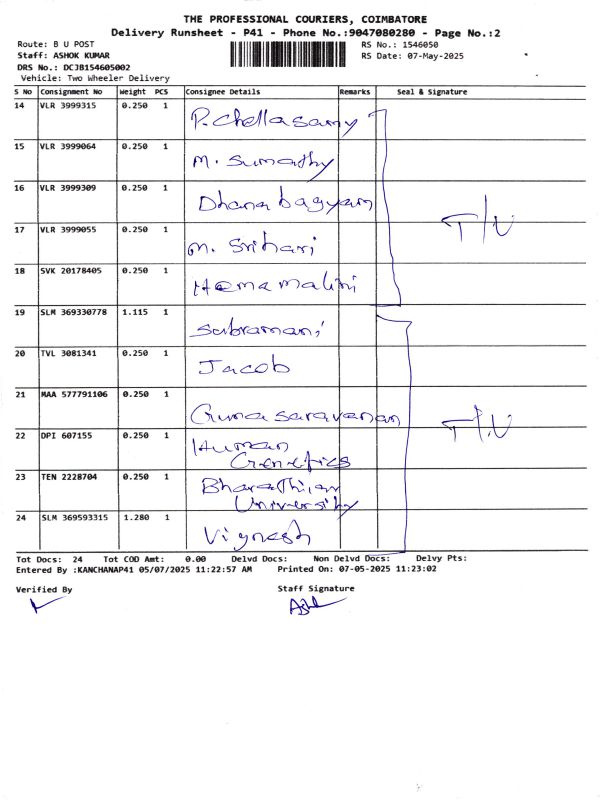 THE PROFESSIONAL COURIERS, COIMBATORE
Delivery Runsheet - P41 - Phone No.:9047080280 - Page No.:2
Route: B U POST
RS No.: 1546050
Staff: ASHOK KUMAR
RS Date: 07-May-2025
DRS No.: DCJB154605002
Vehicle: Two Wheeler Delivery
S No Consignment No Weight PCS Consignee Details Remarks Seal & Signature
14 VLR 3999315 0.250 1 P. Chellasamy
15 VLR 3999064 0.250 1 M. Sumathy
16 VLR 3999309 0.250 1 Dhanabagyam
T/U
17 VLR 3999055 0.250 1 M. Srihari
18 SVK 20178405 0.250 1 Hemamalini
19 SLM 369330778 1.115 1 Subramani
20 TVL 3081341 0.250 1 Jacob
21 MAA 577791106 0.250 1 Gunasaravanan
T/U
22 DPI 607155 0.250 1 Human
Genetics
23 TEN 2228704 0.250 1 Bharathiar
University
24 SLM 369593315 1.280 1 Vignesh
Tot Docs: 24 Tot COD Amt: 0.00 Delvd Docs: Non Delvd Docs: Delvy Pts:
Entered By :KANCHANAP41 05/07/2025 11:22:57 AM Printed On: 07-05-2025 11:23:02
Verified By Staff Signature